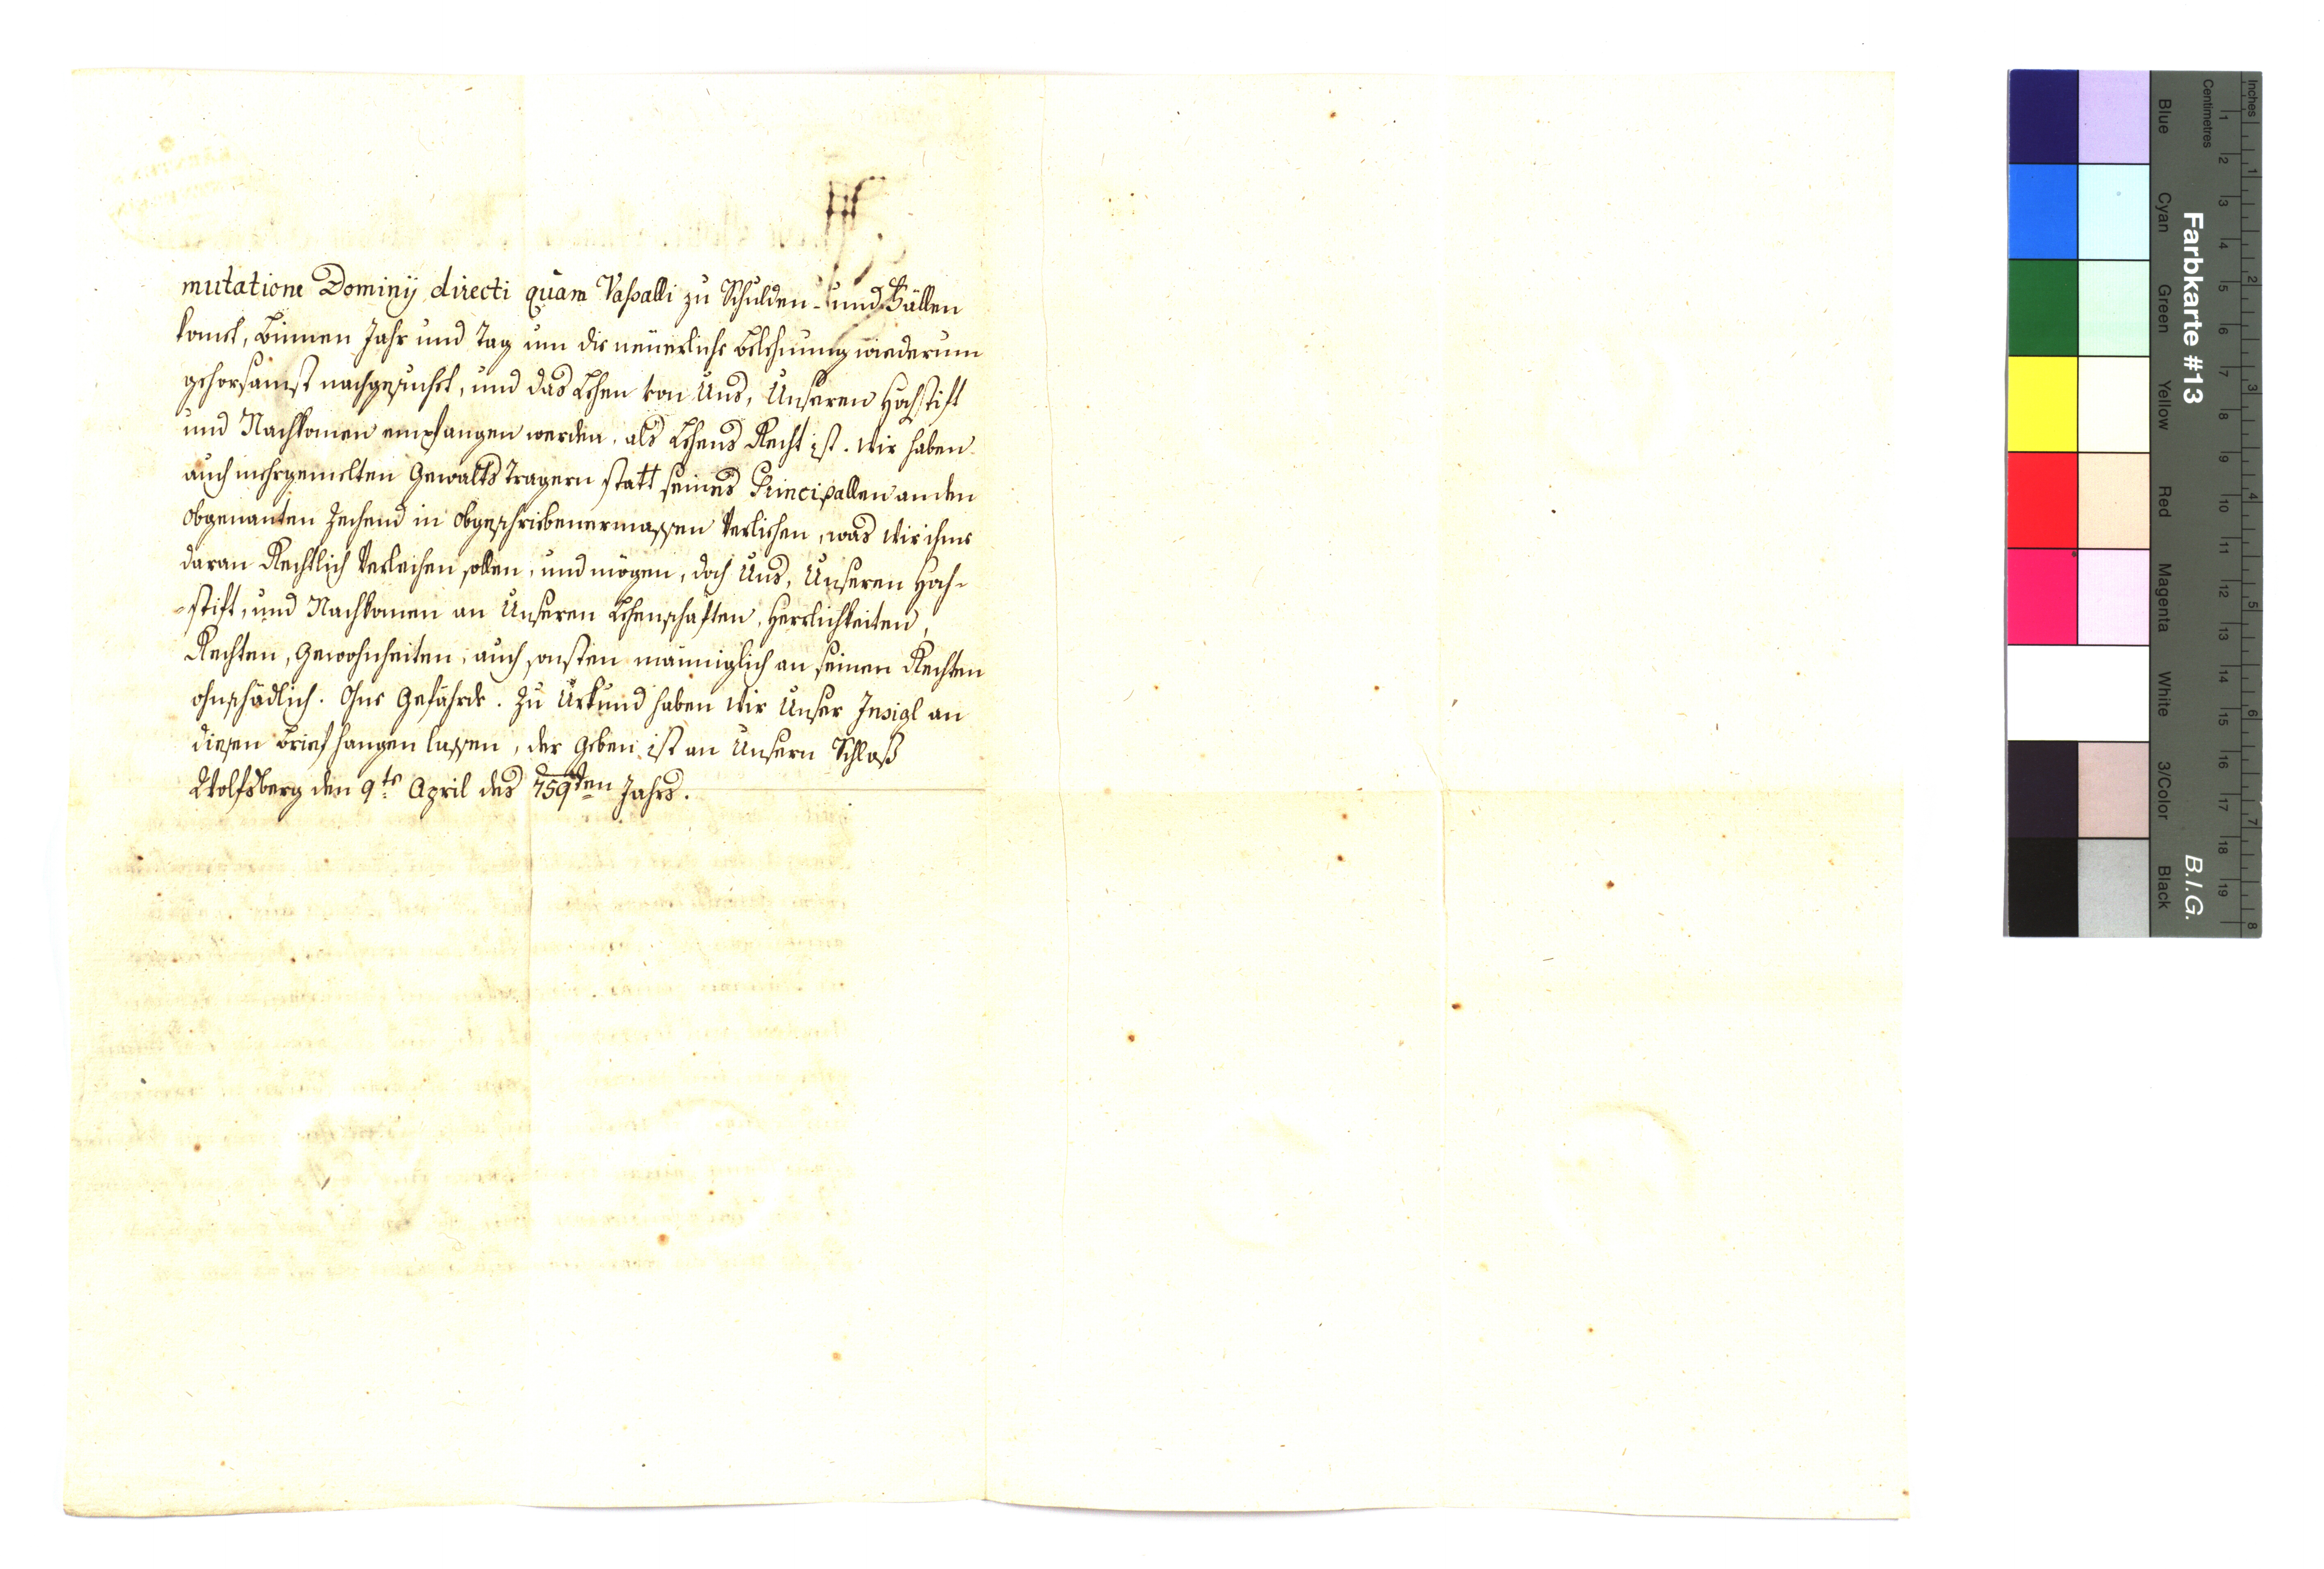 mutatione Dominÿ directi quàm Vaßalli zu Schulden- und Fällen
komet, binnen Jahr und Tag um die neüerliche Belehnung wiederum
gehorsamst nachgesuchet, und das Lehen von Uns, Unseren Hochstift
und Nachkomen empfangen werden, als Lehens Recht ist. Wir haben
auch mehrgemelten Gewalts Tragern statt seines Principallen an den
obgenanten Zechend in obgeschriebenermassen Verlichen, was wir ihme
daran Rechtlich Verleichen sollen, und mögen, doch Uns, Unseren Hoch-
-stift, und Nachkomen an Unseren Lehenschäften, Herrlichkeiten,
Rechten, Gewohnheiten, auch sonsten mäniglich an seinen Rechten
ohnschädlich. Ohne Gefährde. Zu Urkund haben Wir Unser Insigl an
diesen Brief hangen lassen, der geben ist an Unsern Schloß
Wolfsberg den 9te April des 759ten Jahrs.
Farbkarte #13
B.I.G.
Blue
Cyan
Green
Yellow
Red
Magenta
White
3/Color
Black
Inches
1 2 3 4 5 6 7 8
Centimetres
1 2 3 4 5 6 7 8 9 10 11 12 13 14 15 16 17 18 19